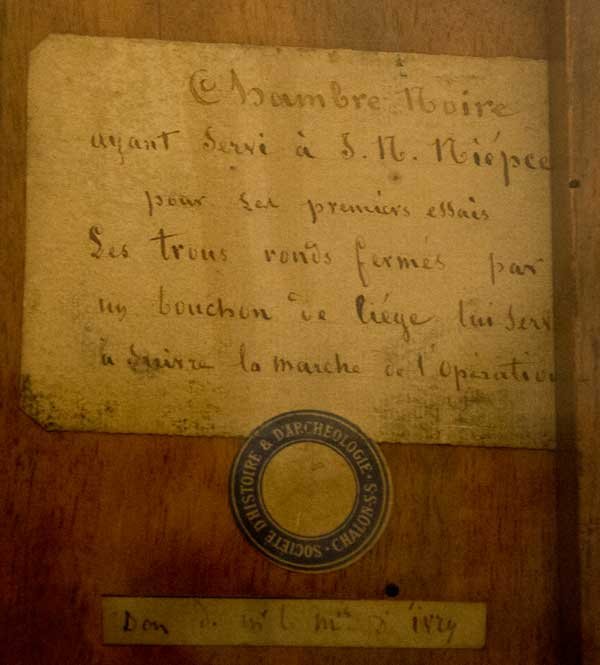 Chambre Noire
ayant Servi à J. N. Niépce
pour Ses premiers essais
Les trous ronds fermés par
un bouchon de liége lui Serv
à Suivre la marche de l'Opération
SOCIÉTÉ D'HISTOIRE & D'ARCHEOLOGIE · CHALON-S-S ·
Don de Mr le Mis d'ivry